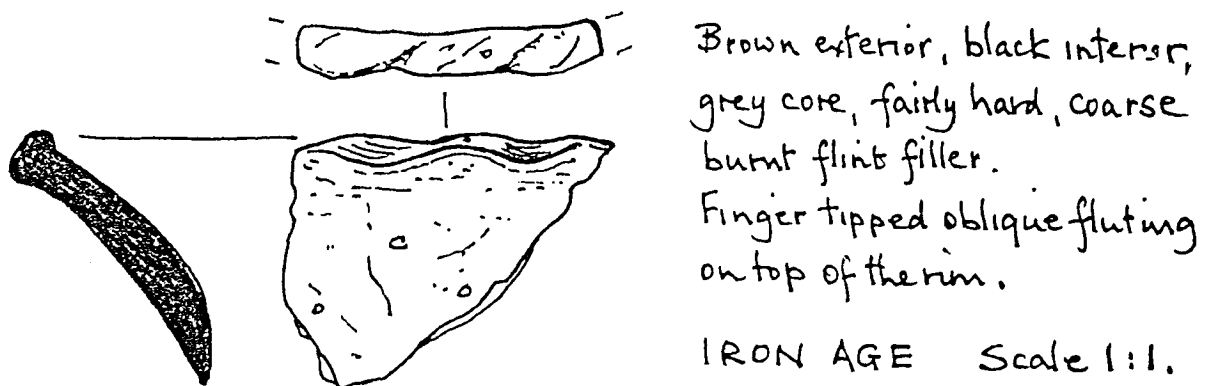 Brown exterior, black interior,
grey core, fairly hard, coarse
burnt flint filler.
Finger tipped oblique fluting
on top of the rim.
IRON AGE Scale 1:1.